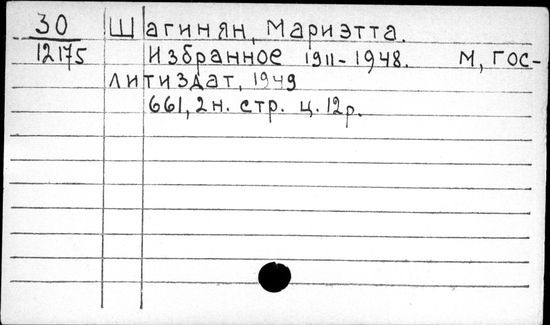 30 Шагинян, Мариэтта.
12175 Избранное 1911-1948. М, Гос-
литиздат, 1949
661, 2 н. стр. ц. 12р.